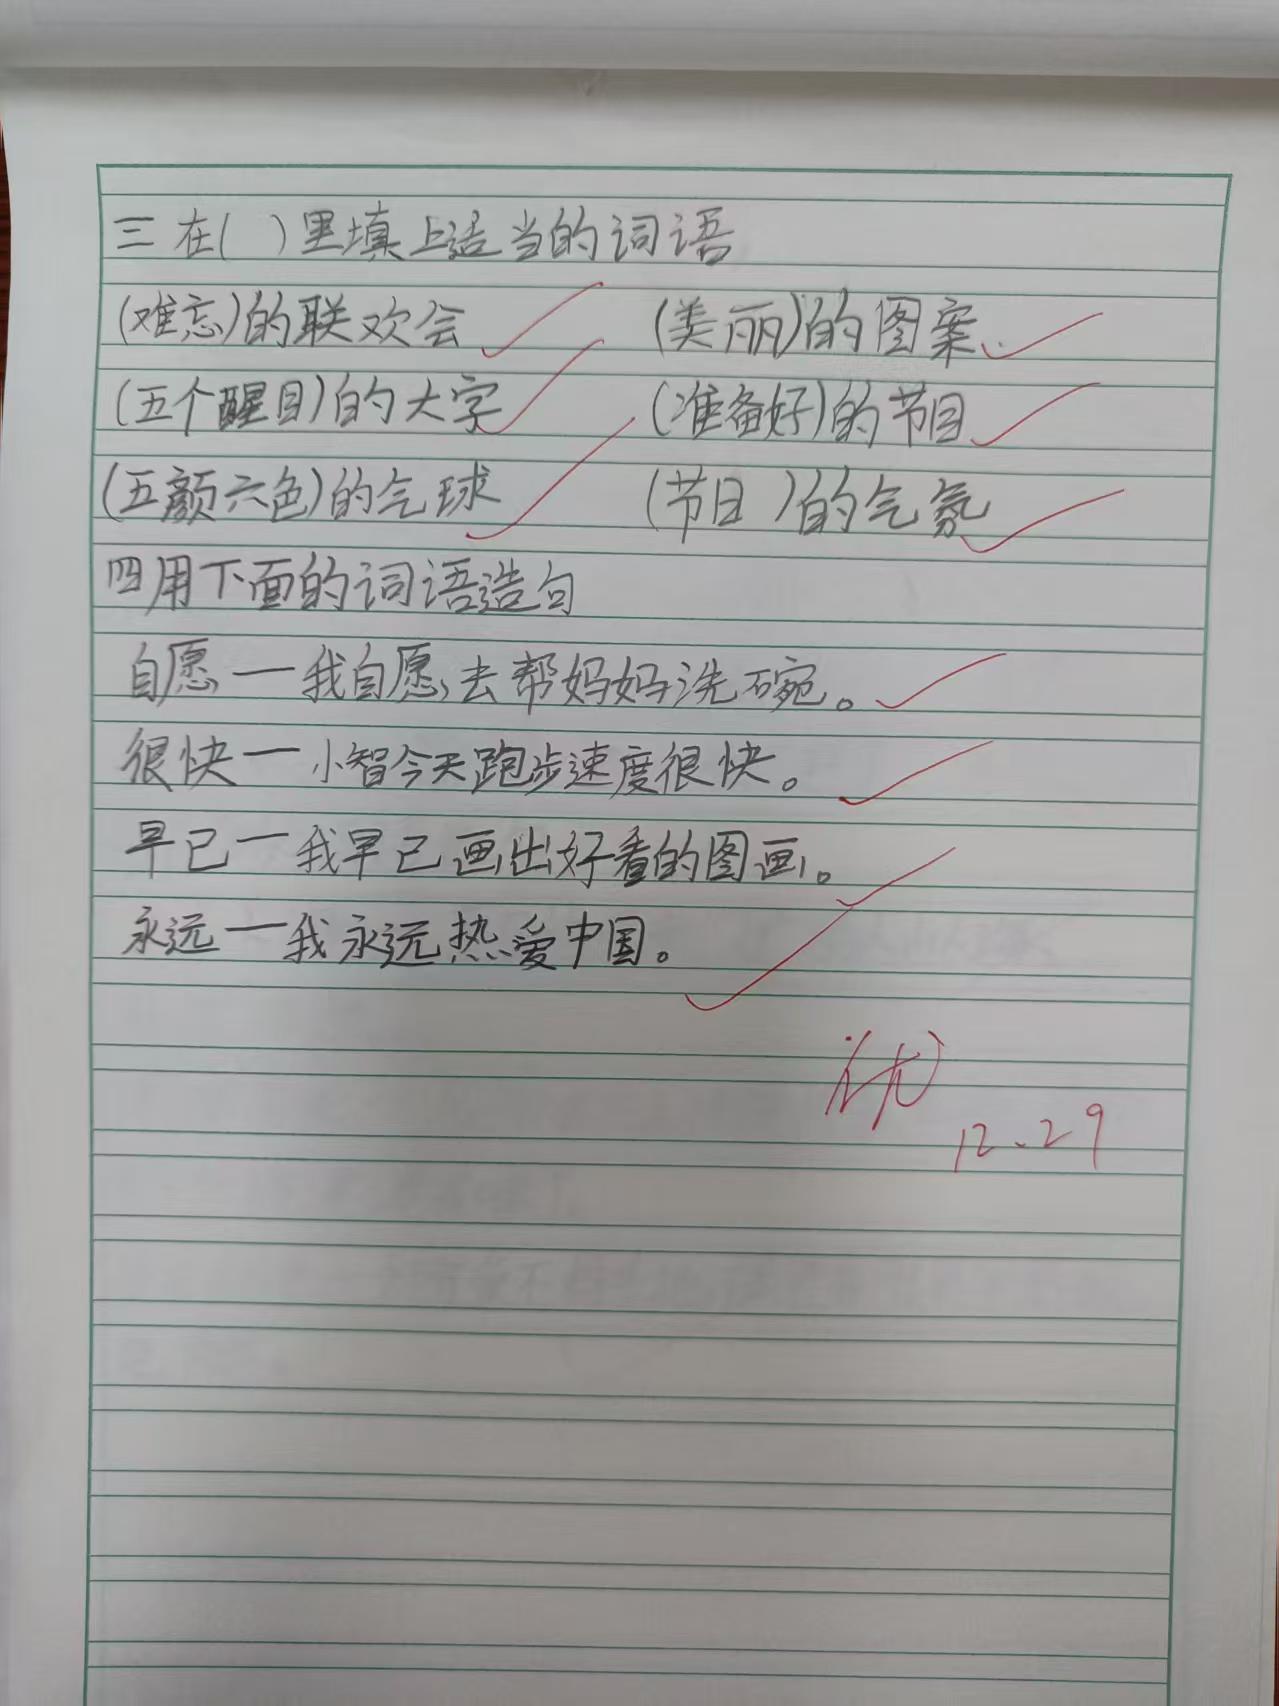 三 在( )里填上适当的词语
(难忘)的联欢会 (美丽)的图案
(五个醒目)的大字 (准备好)的节目
(五颜六色)的气球 (节日 )的气氛
四用下面的词语造句
自愿一我自愿去帮妈妈洗碗。
很快一小智今天跑步速度很快。
早已一我早已画出好看的图画。
永远一我永远热爱中国。
优
12.29